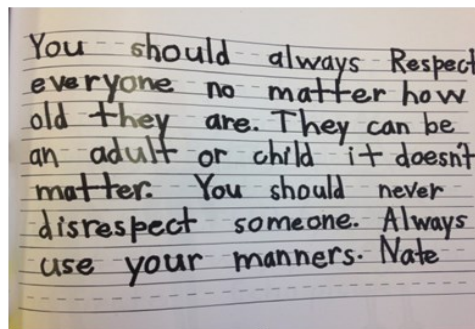 You should always Respect
everyone no matter how
old they are. They can be
an adult or child it doesn't
matter. You should never
disrespect someone. Always
use your manners. Nate